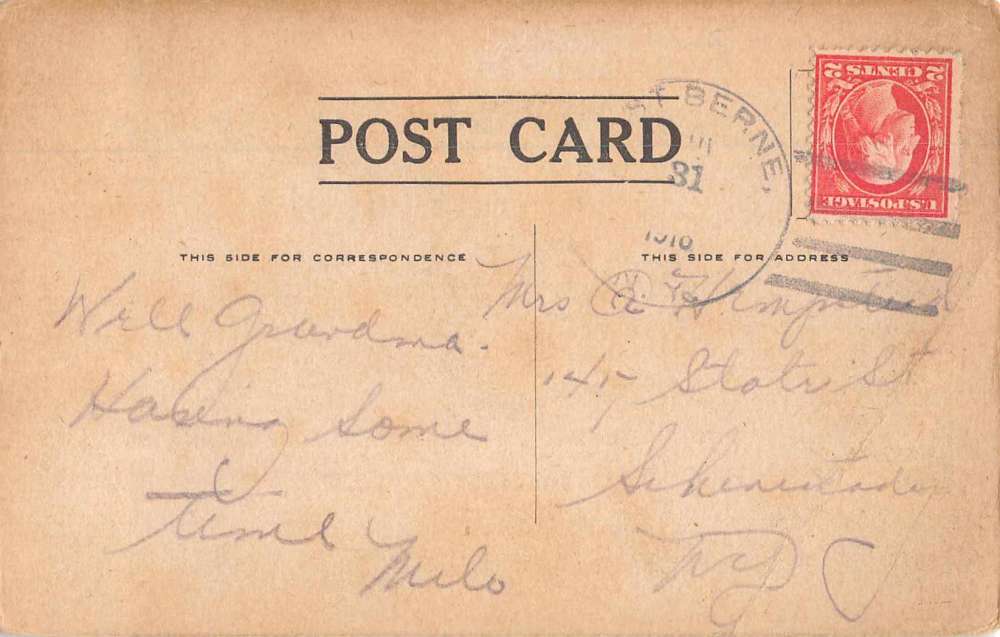 POST CARD
ST BERNE,
31
1916
N.Y.
2 CENTS 2
U.S. POSTAGE
THIS SIDE FOR CORRESPONDENCE
Well Grandma.
Having Some
time
Milo
THIS SIDE FOR ADDRESS
Mrs
St
Schenectady
NY